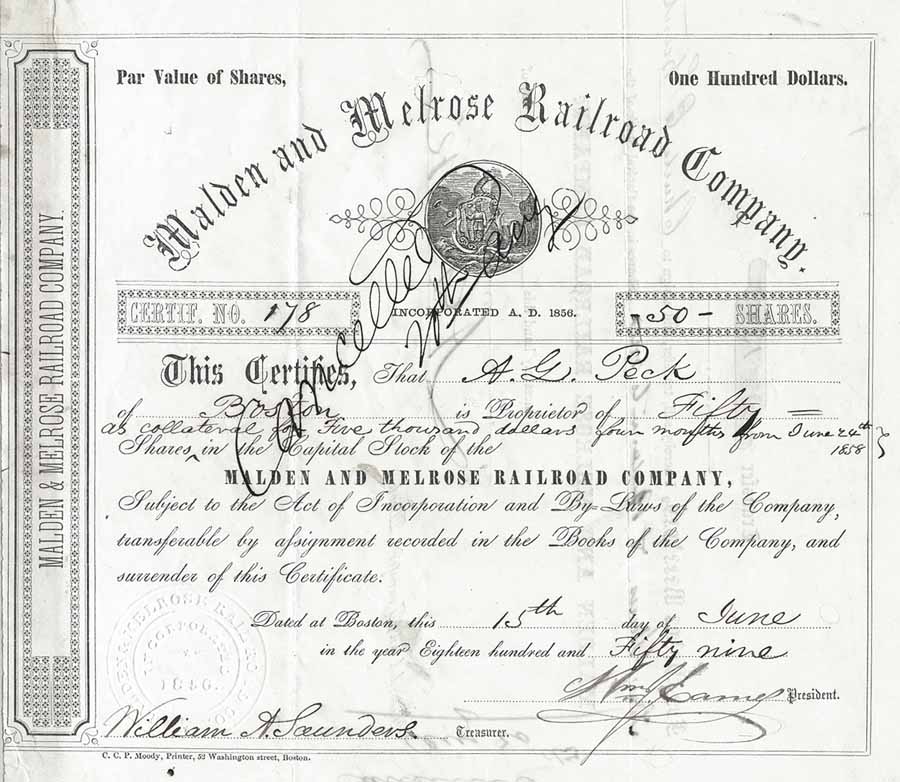 Par Value of Shares, One Hundred Dollars.
Malden and Melrose Railroad Company.
MALDEN & MELROSE RAILROAD COMPANY.
CERTIF. NO. 178 INCORPORATED A. D. 1856. - 50 - SHARES.
Cancelled
This Certifies, That A. G. Peck
of Boston is Proprietor of Fifty
as collateral for Five thousand dollars four months from June 24th 1858
Shares in the Capital Stock of the
MALDEN AND MELROSE RAILROAD COMPANY,
Subject to the Act of Incorporation and By-Laws of the Company,
transferable by assignment recorded in the Books of the Company, and
surrender of this Certificate.
Dated at Boston, this 15th day of June
in the year Eighteen hundred and Fifty nine
President.
William A. Saunders. Treasurer.
C. C. P. Moody, Printer, 52 Washington street, Boston.